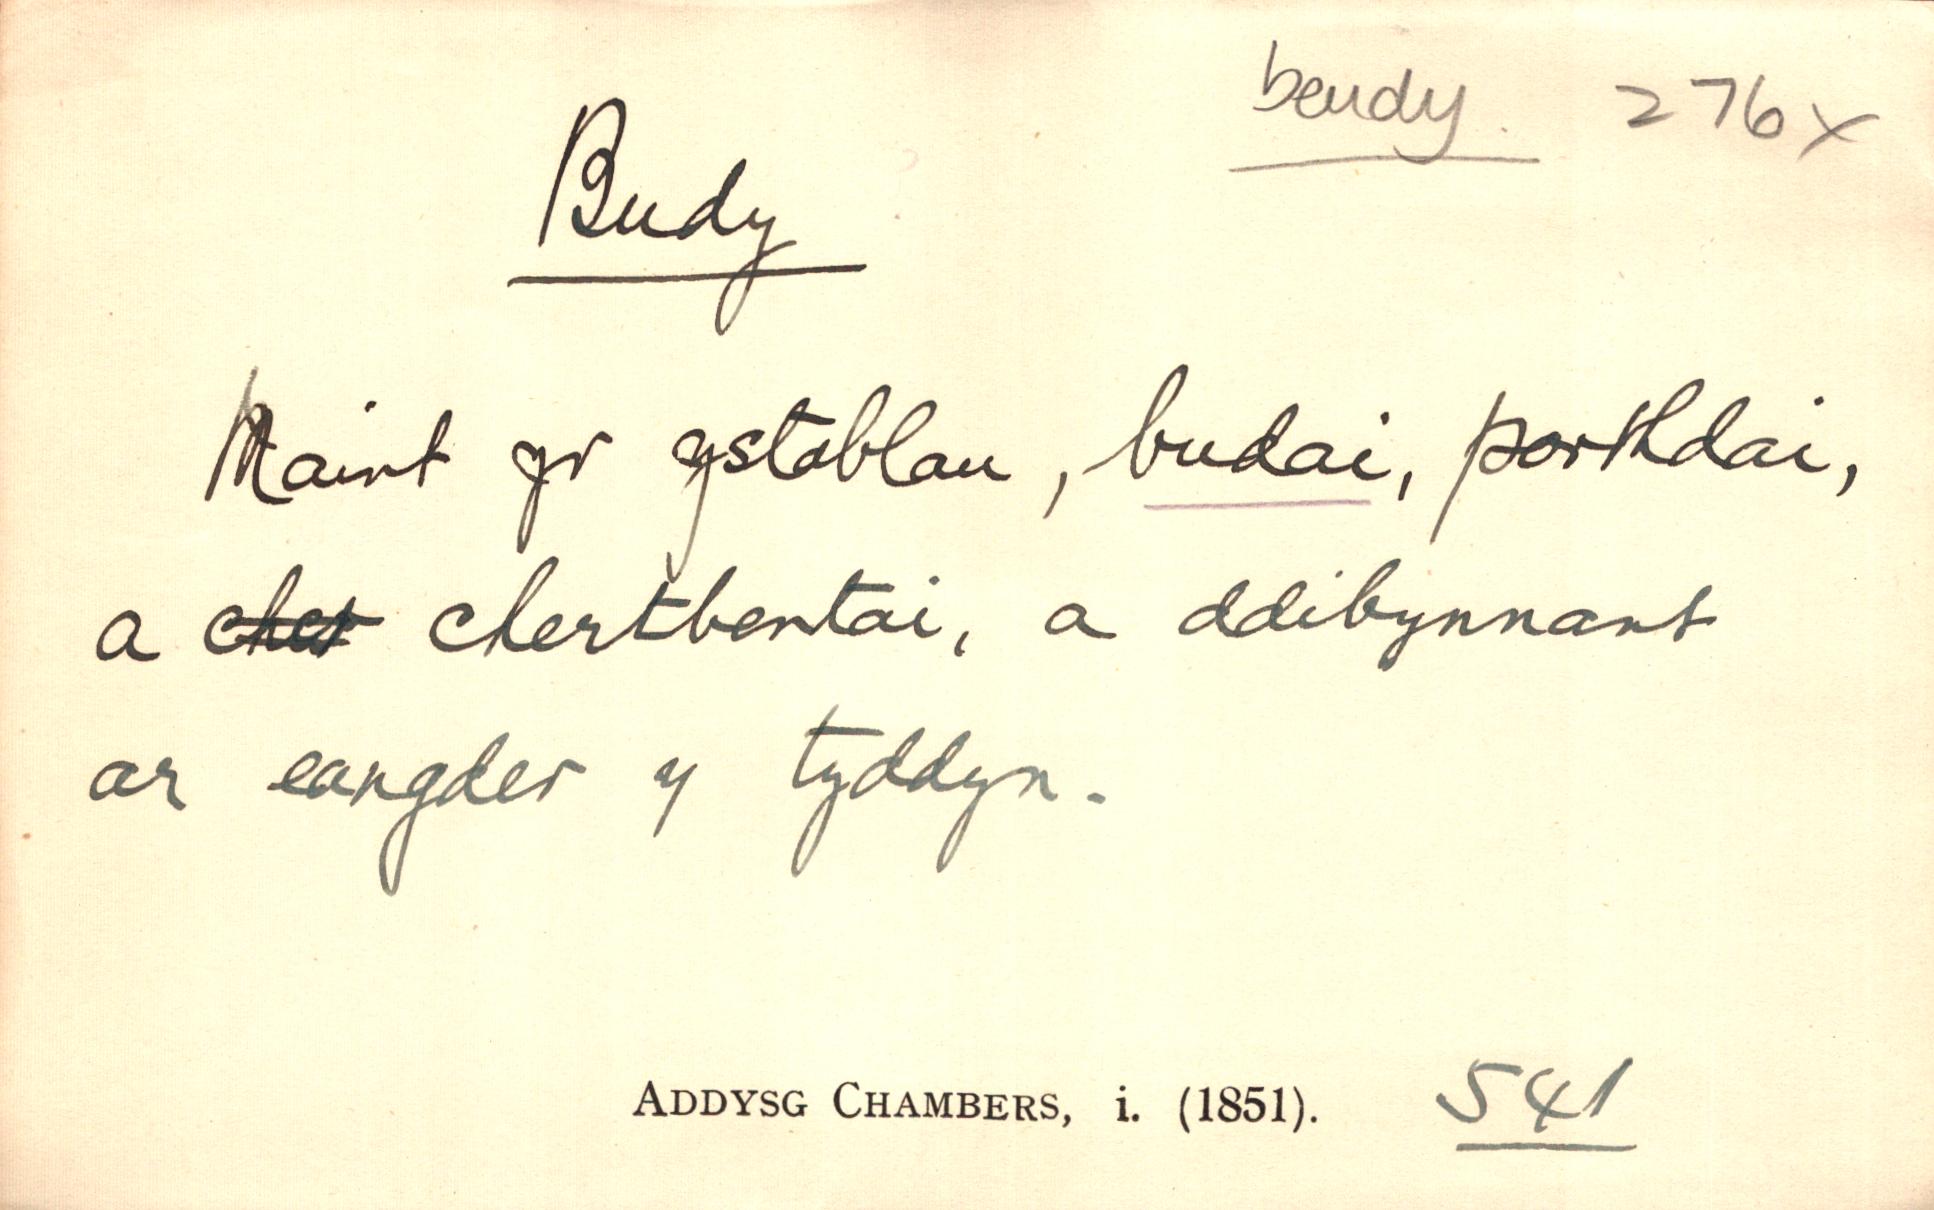 beudy. 276x
Budy
Maint yr ystablau, budai, porthdai,
a cher chertbentai, a ddibynnant
ar eangder y tyddyn.
ADDYSG CHAMBERS, i. (1851). 541